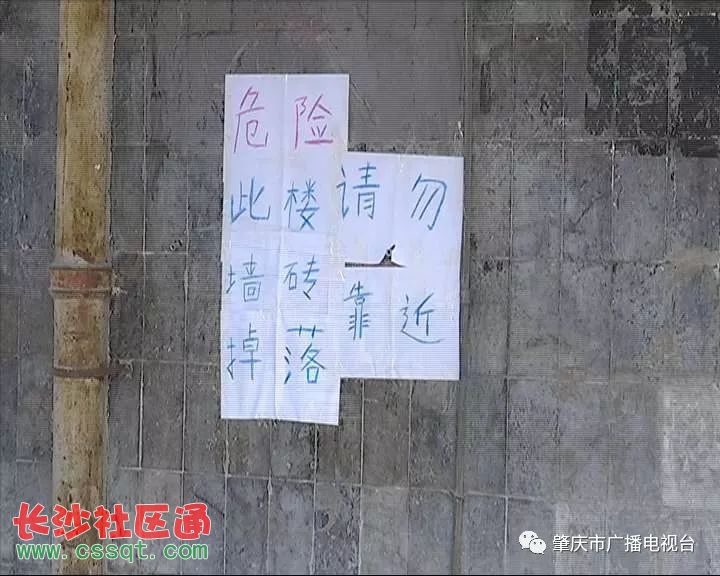 危险
此楼
墙砖
掉落
请勿
靠近
长沙社区通
www.cssqt.com
肇庆市广播电视台